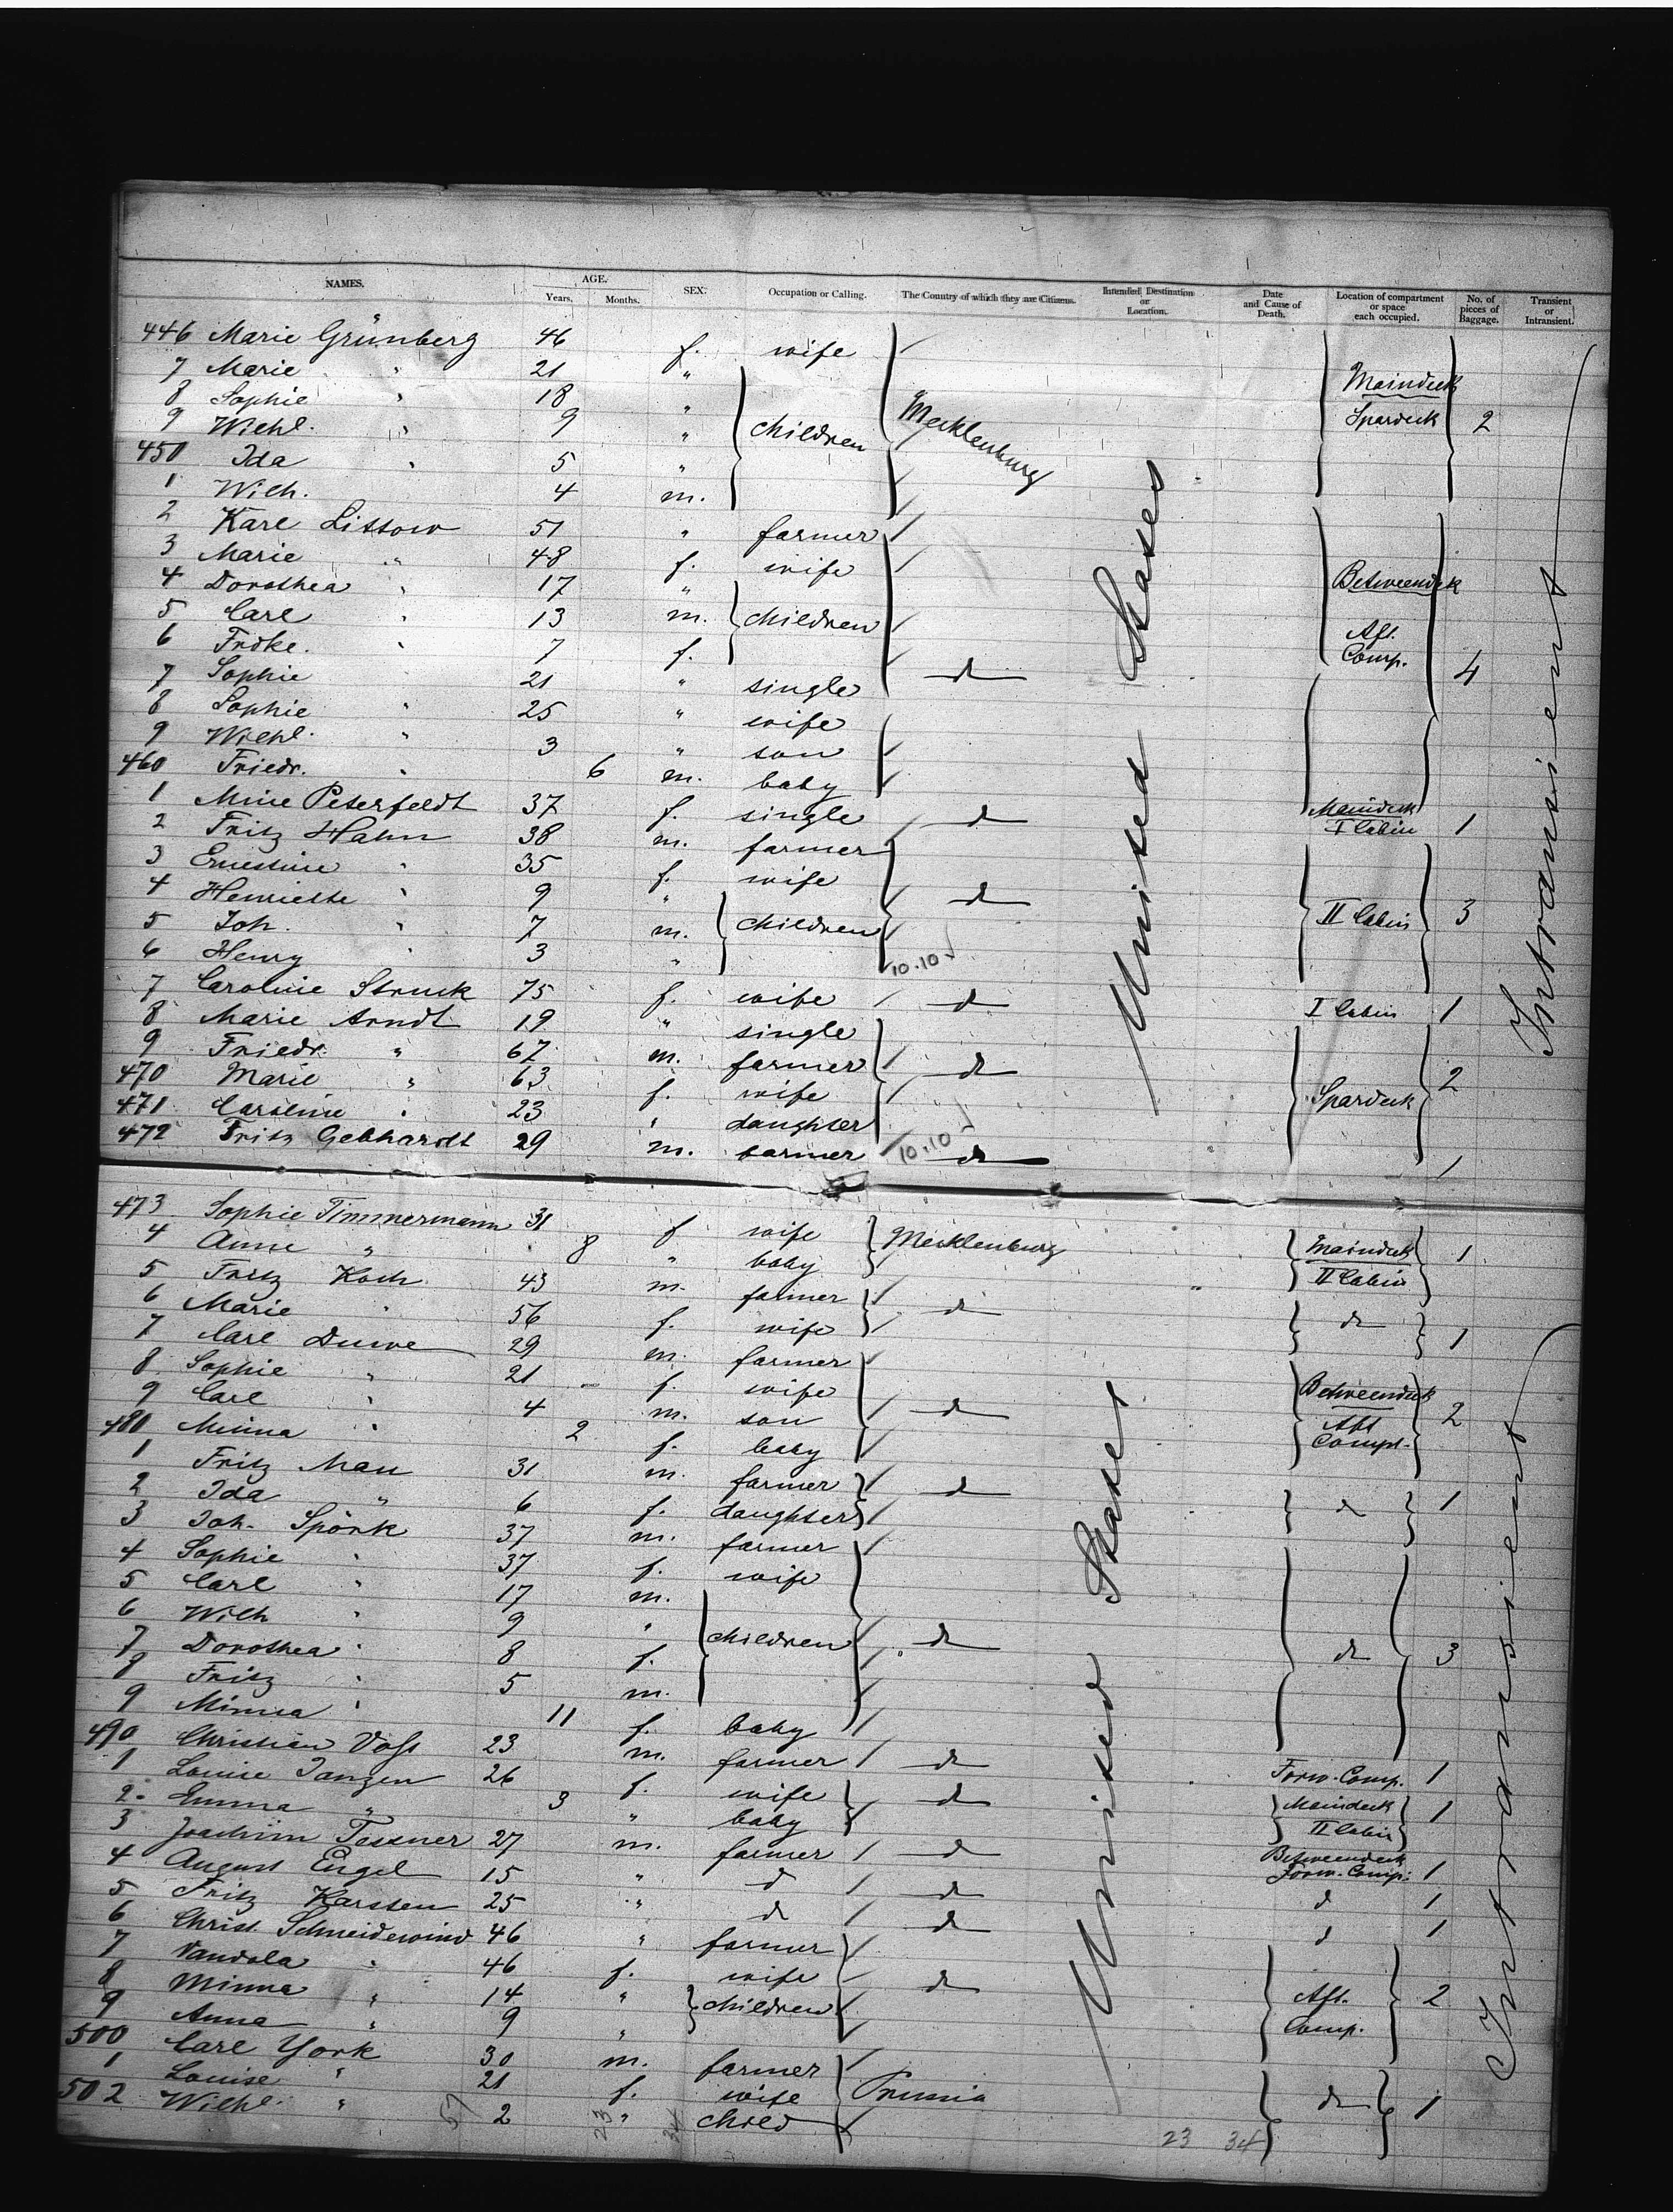 NAMES. AGE. Years. Months. SEX. Occupation or Calling. The Country of which they are Citizens. Intended Destination or Location. Date and Cause of Death. Location of compartment or space each occupied. No. of pieces of Baggage. Transient or Intransient.
446 Marie Grünberg 46 f. wife
7 Marie " 21 " Maindeck
8 Sophie " 18 " Spardeck 2
9 Wilhl. " 9 " children Mecklenburg
450 Ida " 5 "
1 Wilh. 4 m.
2 Karl Lissow 51 " farmer
3 Marie " 48 f. wife
4 Dorothea " 17 " Betweendek
5 Carl " 13 m. children Aft. Comp.
6 Fridke. " 7 f. 4
7 Sophie 21 " single d
8 Sophie " 25 " wife
9 Wilhl. " 3 " son
460 Friedr. " 6 m. baby
1 Mine Peterfeldt 37 f. single d Maindeck I Cabin 1
2 Fritz Hahn 38 m. farmer
3 Ernestine " 35 f. wife
4 Henriette " 9 " d II Cabin 3
5 Joh. " 7 m. children
6 Henry " 3 " 10.10
7 Caroline Struck 75 f. wife d I Cabin 1
8 Marie Arndt 19 " single
9 Friedr. " 67 m. farmer d 2
470 Marie " 63 f. wife Spardeck
471 Caroline " 23 " daughter
472 Fritz Gebhardt 29 m. farmer 10.10 d 1
United States
Intransient
473 Sophie Timmermann 31 f wife Mecklenburg Maindeck 1
4 Anne " 8 " baby II Cabin
5 Fritz Koch 43 m. farmer d
6 Marie " 56 f. wife d 1
7 Carl Duwe 29 m. farmer
8 Sophie " 21 f. wife Betweendeck
9 Carl " 4 m. son d Aft Compt. 2
480 Minna " 2 f. baby
1 Fritz Mau 31 m. farmer d
2 Ida " 6 f. daughter d 1
3 Joh. Spörk 37 m. farmer
4 Sophie " 37 f. wife
5 Carl " 17 m.
6 Wilh " 9 " children d
7 Dorothea " 8 f. d 3
8 Fritz " 5 m.
9 Minna " 11 f. baby
490 Christian Voss 23 m. farmer d Forw. Comp. 1
1 Louise Janzen 26 f. wife d Maindeck 1
2 Emma " 3 " baby II Cabin
3 Joachim Tessner 27 m. farmer d Betweendeck Forw. Comp. 1
4 August Engel 15 " d d d 1
5 Fritz Karsten 25 " d d d 1
6 Christ. Schneidewind 46 " farmer
7 Vandola " 46 f. wife d
8 Minna " 14 " children Aft. Comp. 2
9 Anna " 9 "
500 Carl York 30 m. farmer
1 Louise " 21 f. wife Prussia d 1
502 Wilhl. " 2 " child
United States
Intransient
57 23 34 23 34